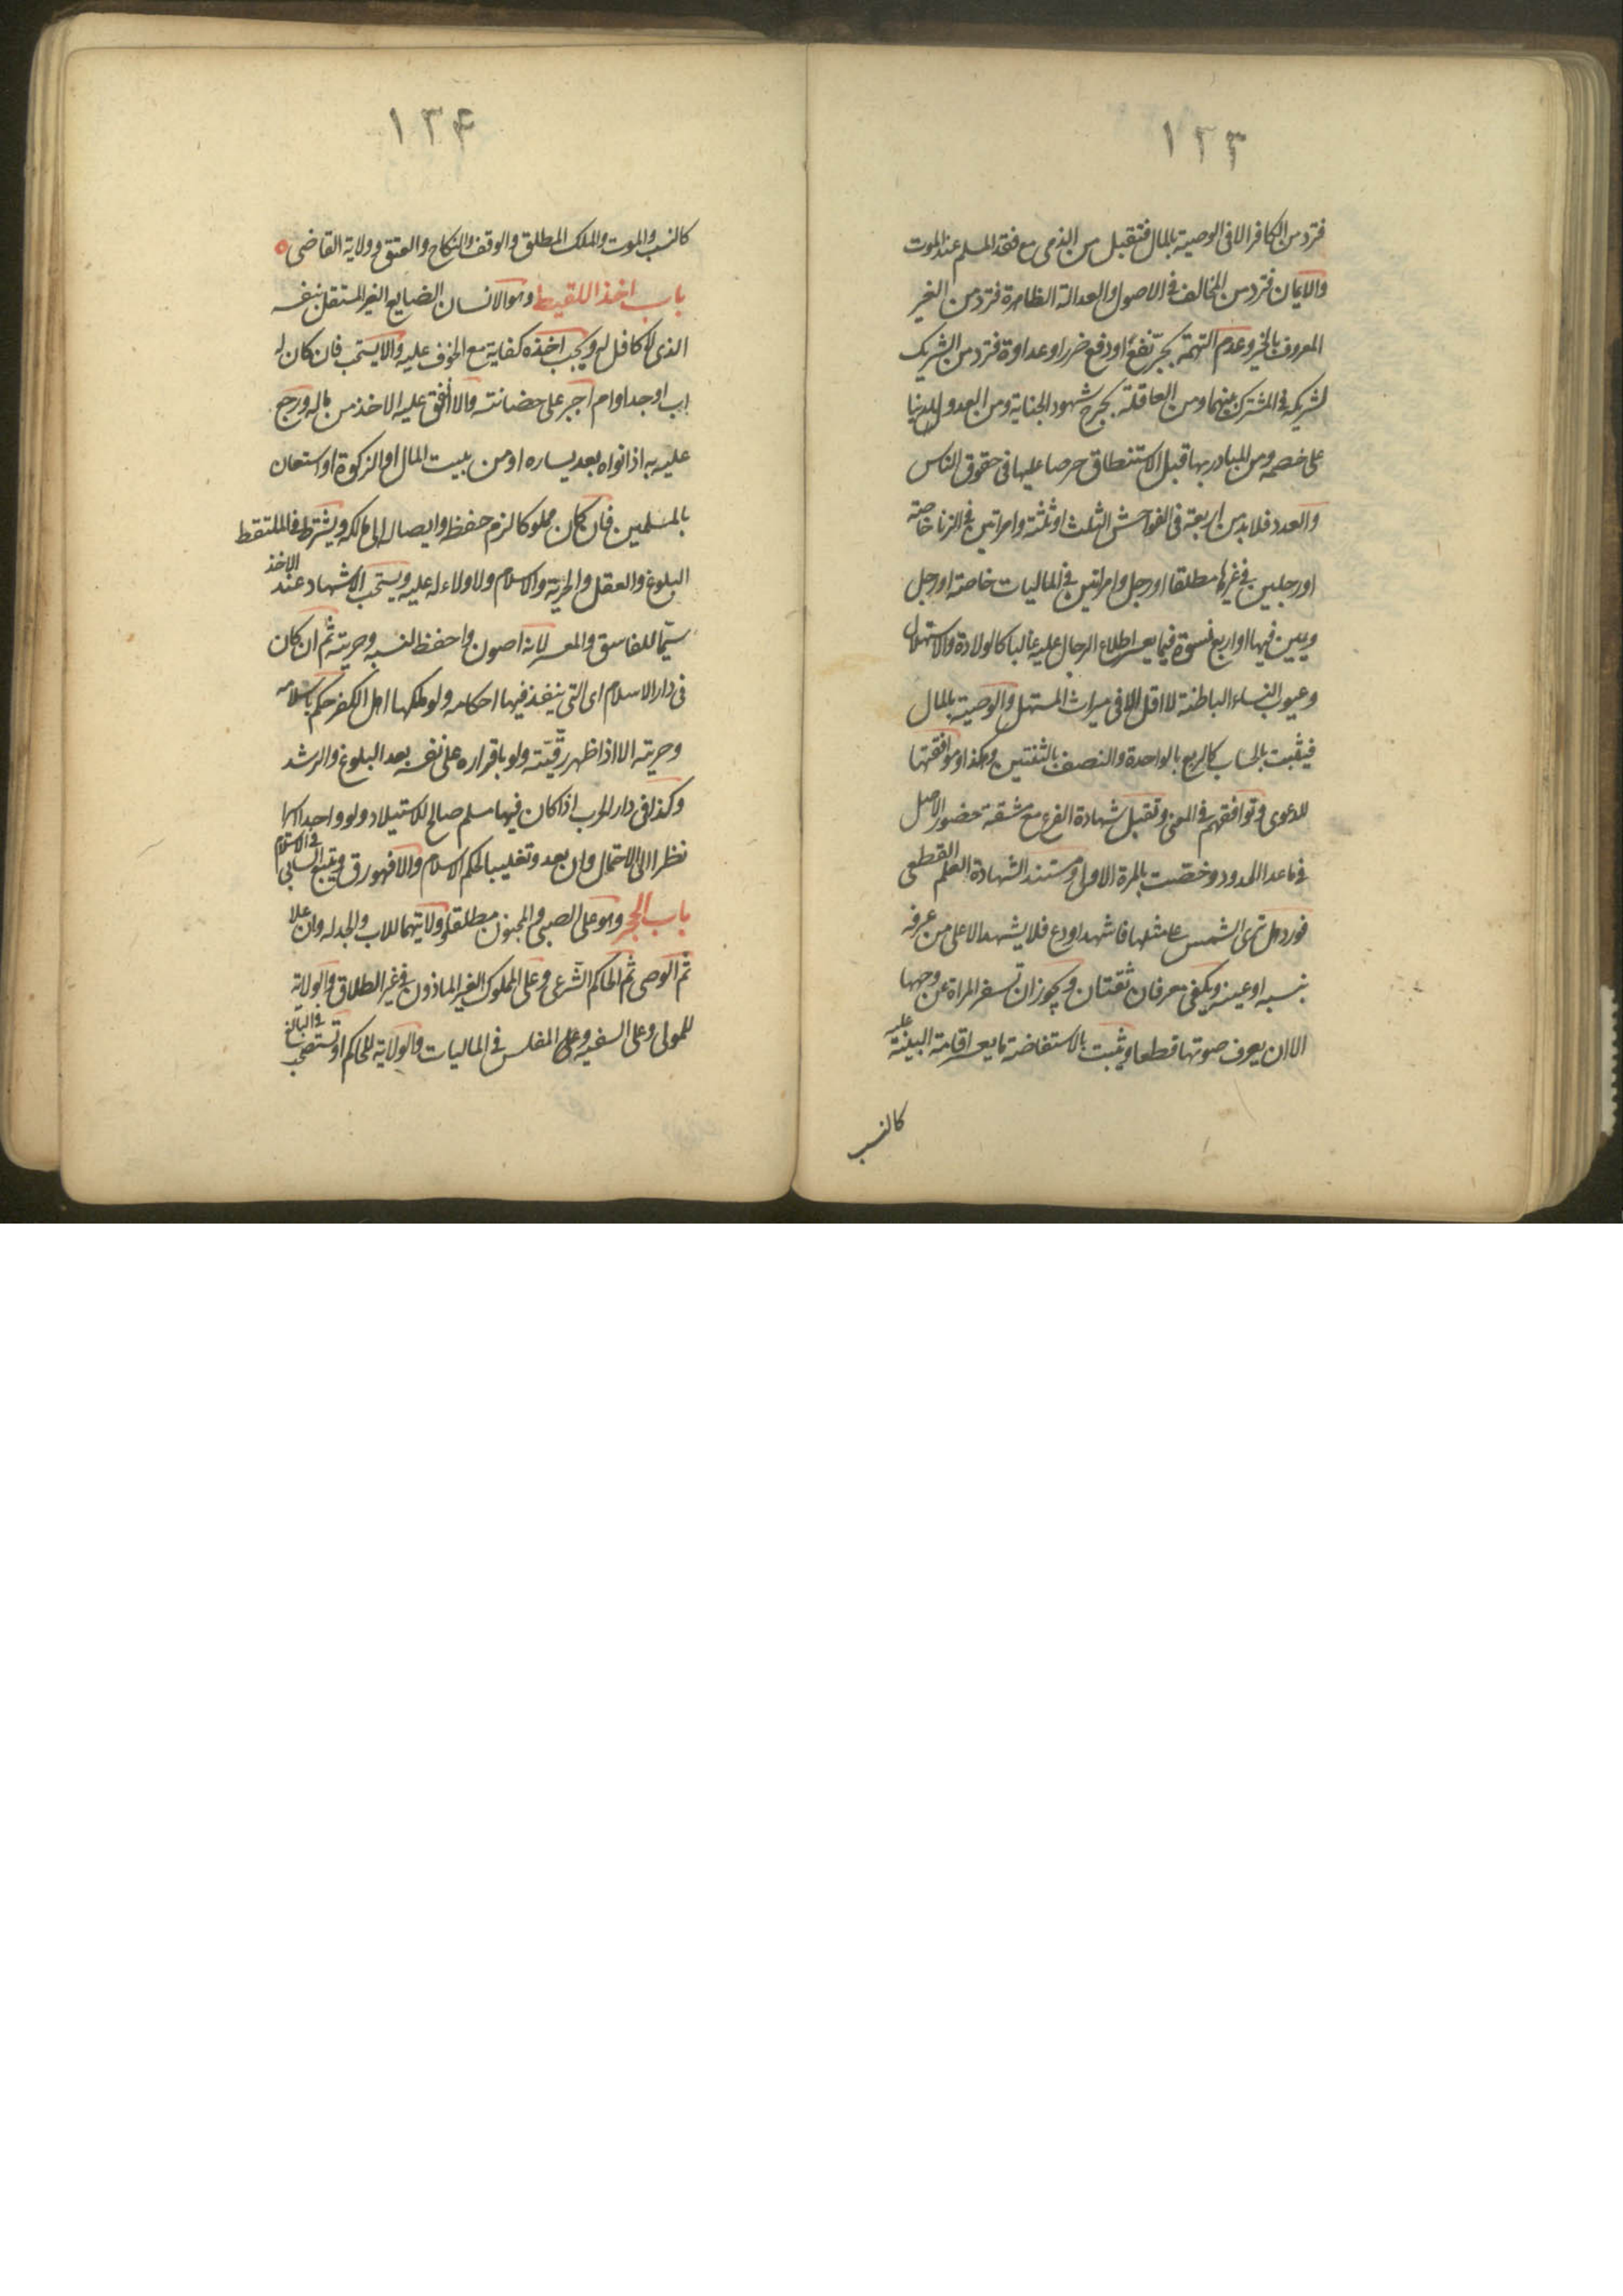 ١٣٣
فترد من الكافر الا فى الوصية بالمال فتقبل من الذمى مع فقد المسلم عند الموت
والايمان فترد من المخالف فى الاصول والعدالة الظاهرة فترد من الغير
المعروف بالخير وعدم التهمة بجرّ نفع او دفع ضرر او عداوة فترد من الشريك
لشريكه فى المشترك بينهما ومن العاقلة بجرح شهود الجناية ومن العدو للدنيا
على خصمه ومن المبادر بها قبل الاستنطاق حرصا عليها فى حقوق الناس
والعدد فلابد من اربعة فى الفواحش الثلث او ثلثة وامراتين فى الزنا خاصة
او رجلين فى غيرها مطلقا او رجل وامراتين فى الماليات خاصة او رجل
ويمين فيها او اربع نسوة فيما يعسر اطلاع الرجال عليه غالبا كالولادة والاستهلال
وعيوب النساء الباطنة لا اقل الا فى ميراث المستهل والوصية بالمال
فيثبت بالحساب كالربع بالواحدة والنصف بالثنتين وهكذا وموافقتها
للدعوى وتوافقهم فى المعنى وتقبل شهادة الفرع مع مشقة حضور الاصل
فى ما عدا الحدود وخصت بالمرة الاولى ومستند الشهادة العلم القطعى
فورد هل ترى الشمس على مثلها فاشهد او دع فلا يشهد الا على من عرفه
بنسبه او عينه ويكفى معرفان ثقتان ويجوز ان تسفر المراة عن وجهها
الا ان يعرف صوتها قطعا ويثبت بالاستفاضة ما يعسر اقامة البينة عليه
كالنسب
١٣۴
كالنسب والموت والملك المطلق والوقف والنكاح والعتق وولاية القاضى
باب اخذ اللقيط وهو الانسان الضايع الغير المستقل بنفسه
الذى لا كافل له ويجب اخذه كفاية مع الخوف عليه والا يستحب فان كان له
اب او جد او ام اجبر على حضانته والا انفق عليه الاخذ من ماله ورجع
عليه به اذا نواه بعد يساره او من بيت المال او الزكوة او استعان
بالمسلمين فان كان مملوكا لزم حفظه وايصاله الى مالكه ويشترط فى الملتقط
البلوغ والعقل والحرية والاسلام ولا ولاء له عليه ويستحب الاشهاد عند الاخذ
سيّما للفاسق والمعسر لانه اصون واحفظ لنسبه وحريته ثم ان كان
فى دار الاسلام اى التى ينفذ فيها احكامه ولو ملكها اهل الكفر حكم باسلامه
وحريته الا اذا ظهر رقيّته ولو باقراره على نفسه بعد البلوغ والرشد
وكذا فى دار الحرب اذا كان فيها مسلم صالح للاستيلاد ولو واحدا
نظرا الى الاحتمال وان بعد وتغليبا لحكم الاسلام والا فهو رق ويتبع السابى فى الاسلام
باب الحجر وهو على الصبى والمجنون مطلقا وولايتهما للاب والجد له وان علا
ثم الوصى ثم الحاكم الشرعى وعلى المملوك الغير الماذون فى غير الطلاق والولاية
للمولى وعلى السفيه وعلى المفلس فى الماليات والولاية للحاكم او تستصحب فى البالغ